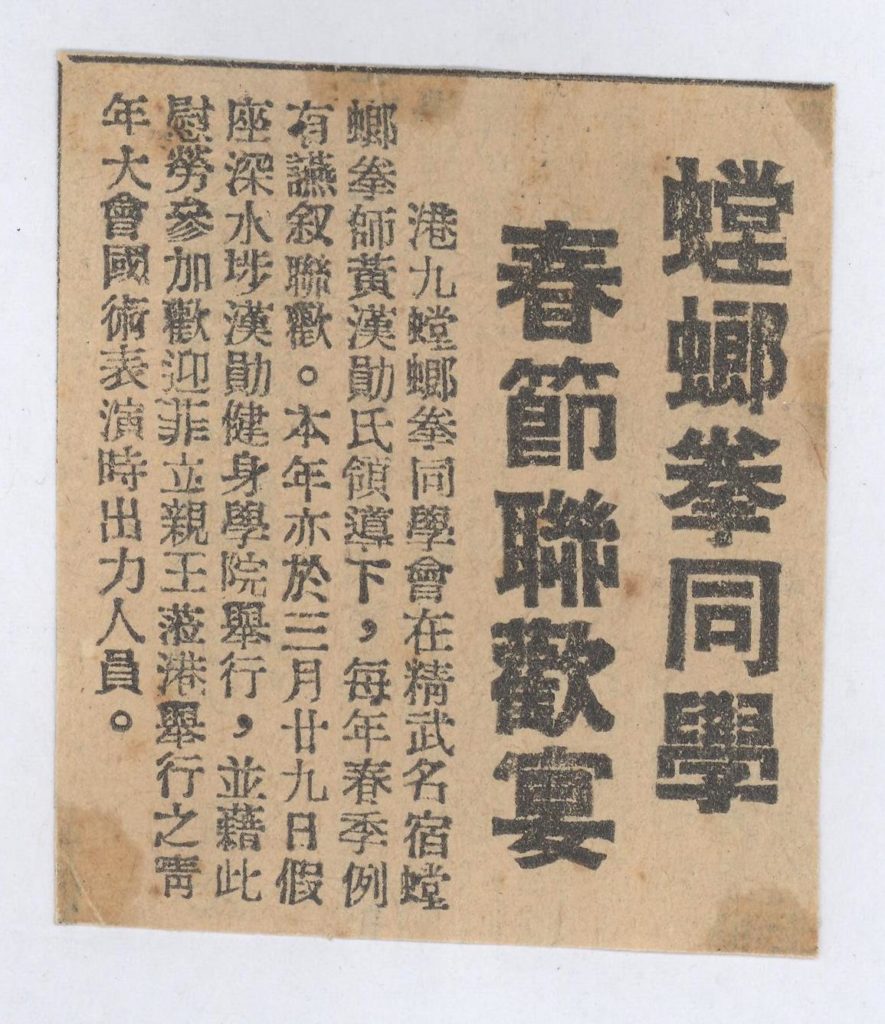 螳螂拳同學
春節聯歡宴
港九螳螂拳同學會在精武名宿螳
螂拳師黃漢勛氏領導下，每年春季例
有讌叙聯歡。本年亦於三月廿九日假
座深水埗漢勛健身學院舉行，並藉此
慰勞參加歡迎菲立親王蒞港舉行之靑
年大會國術表演時出力人員。